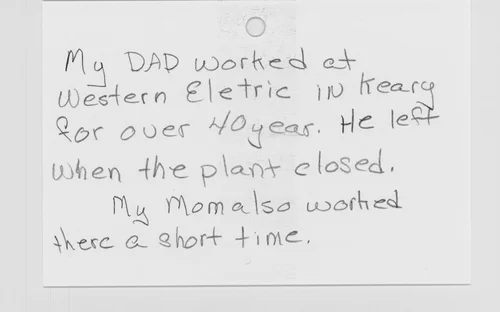 My DAD worked at
Western Eletric in Keary
for over 40 year. He left
when the plant closed.
My Mom also worked
there a short time.